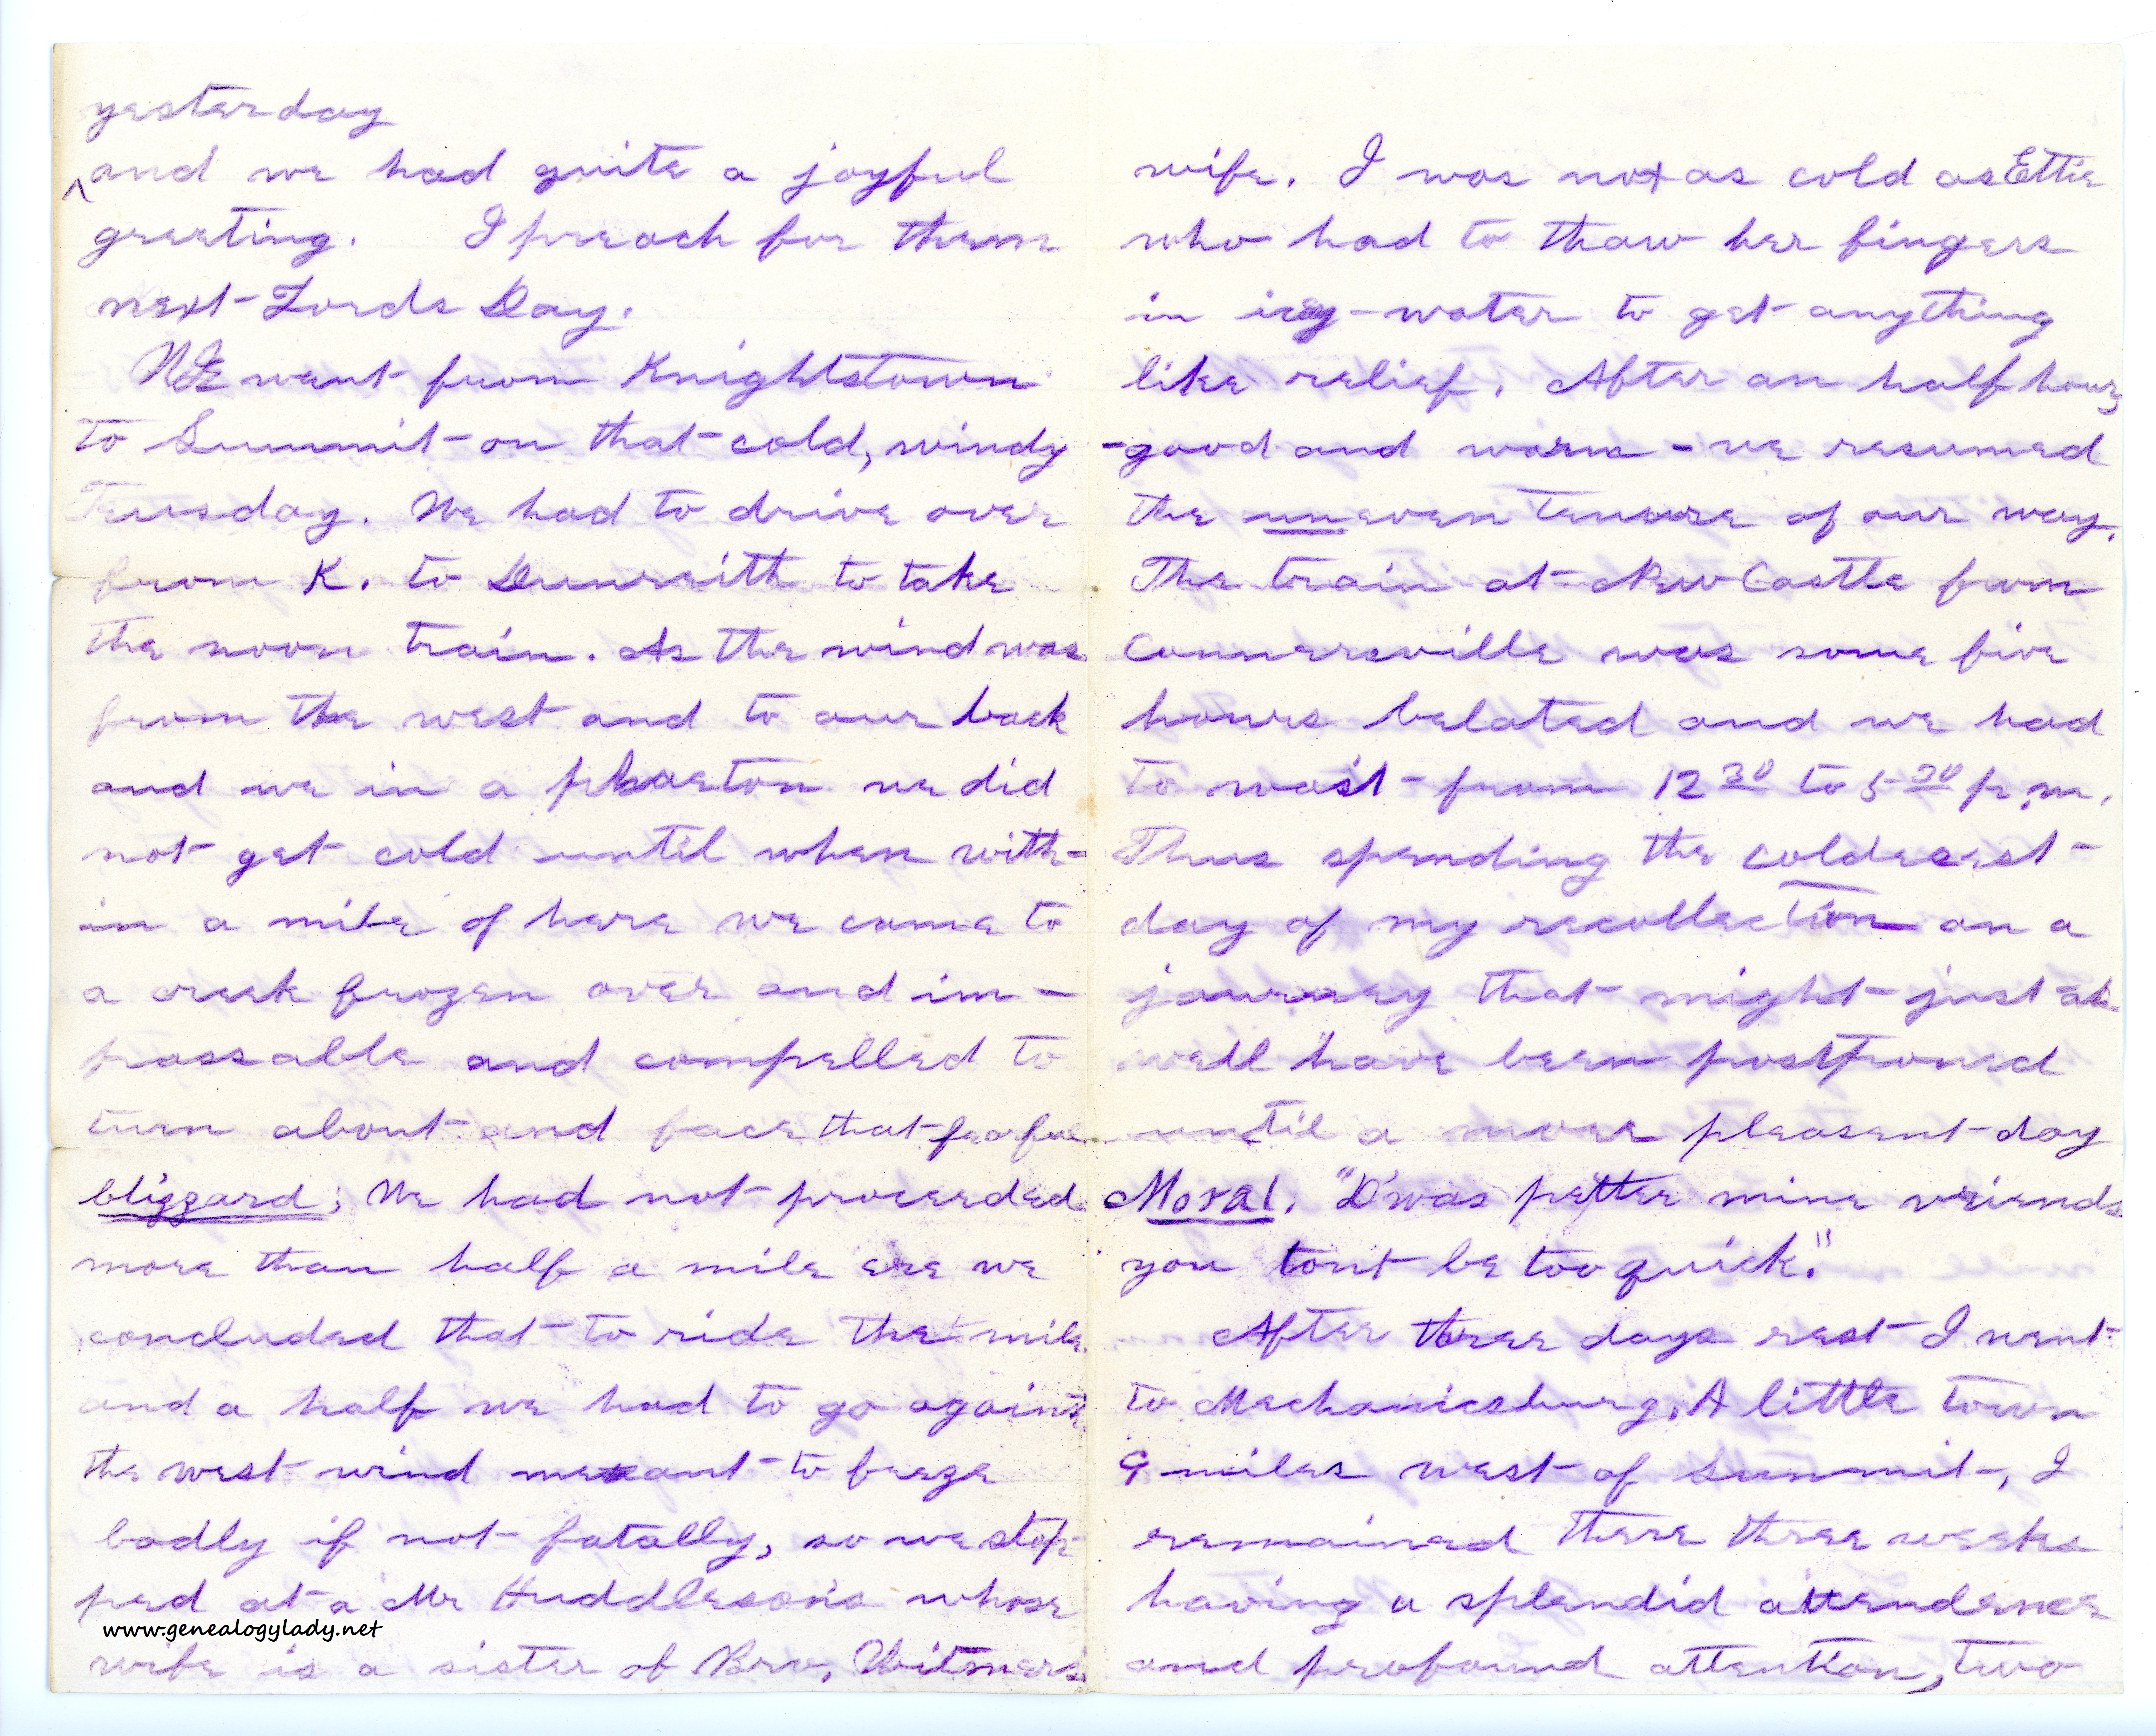 yesterday
^and we had quite a joyful
greeting. I preach for them
next Lords Day.
We went from Knightstown
to Summit on that cold, windy
Teusday. We had to drive over
from K. to Dunreith to take
the noon train. As the wind was
from the west and to our back
and we in a phaeton we did
not get cold until when with-
in a mile of here we come to
a creek frozen over and im-
passable and compelled to
turn about and face that fearful
blizzard; We had not proceeded
more than half a mile ere we
concluded that to ride the mile
and a half we had to go against
the west wind meant to freeze
badly if not fatally, so we stop-
ped at a Mr Huddleson's whose
www.genealogylady.net
wife is a sister of Bro, Witmers
wife. I was not as cold as Ettie
who had to thaw her fingers
in icy-water to get anything
like relief. After an half hour,
-good and warm - we resumed
the uneven tenure of our way.
The train at New Castle from
Connersville was some five
hours belated and we had
to wait from 12 30 to 5 30 p.m.
Thus spending the coldest
day of my recollection on a
journey that might just as
well have been postponed
until a more pleasent day
Moral. "D'was petter mine vriends
you tont be too quick."
After three days rest I went
to Mechanicsburg, A little town
9 miles west of Summit, I
remained there three weeks
having a splendid attendence
and profound attention, two